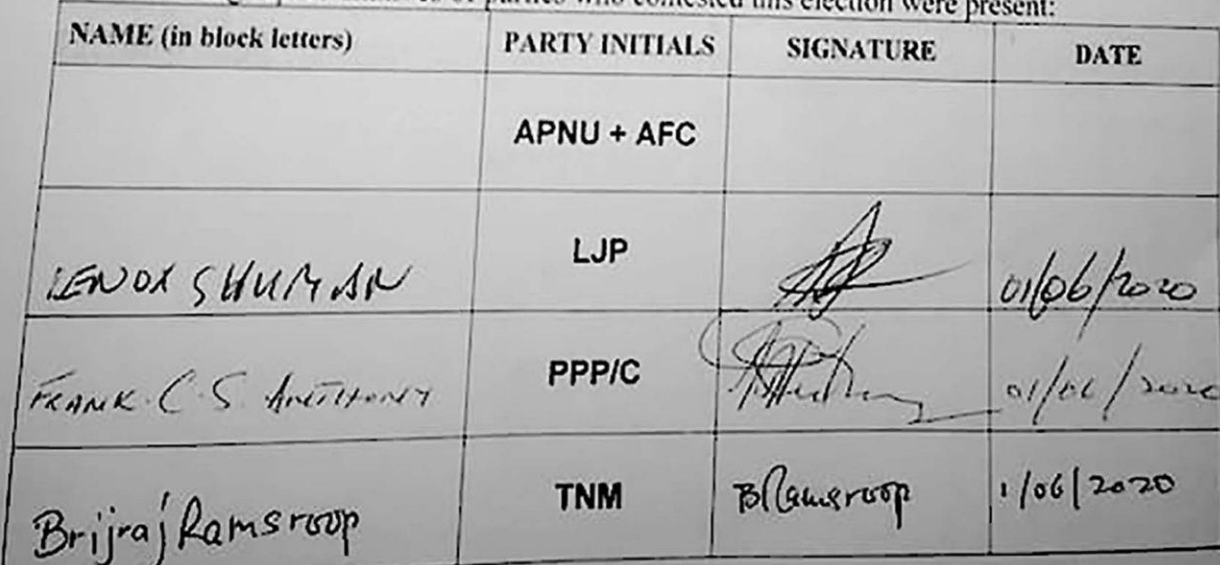 parties who contested this election were present:
NAME (in block letters) PARTY INITIALS SIGNATURE DATE
APNU + AFC
LENOX SHUMAN LJP 01/06/2020
FRANK C.S. ANTHONY PPP/C 01/06/2020
Brijraj Ramsroop TNM BRamsroop 1/06/2020